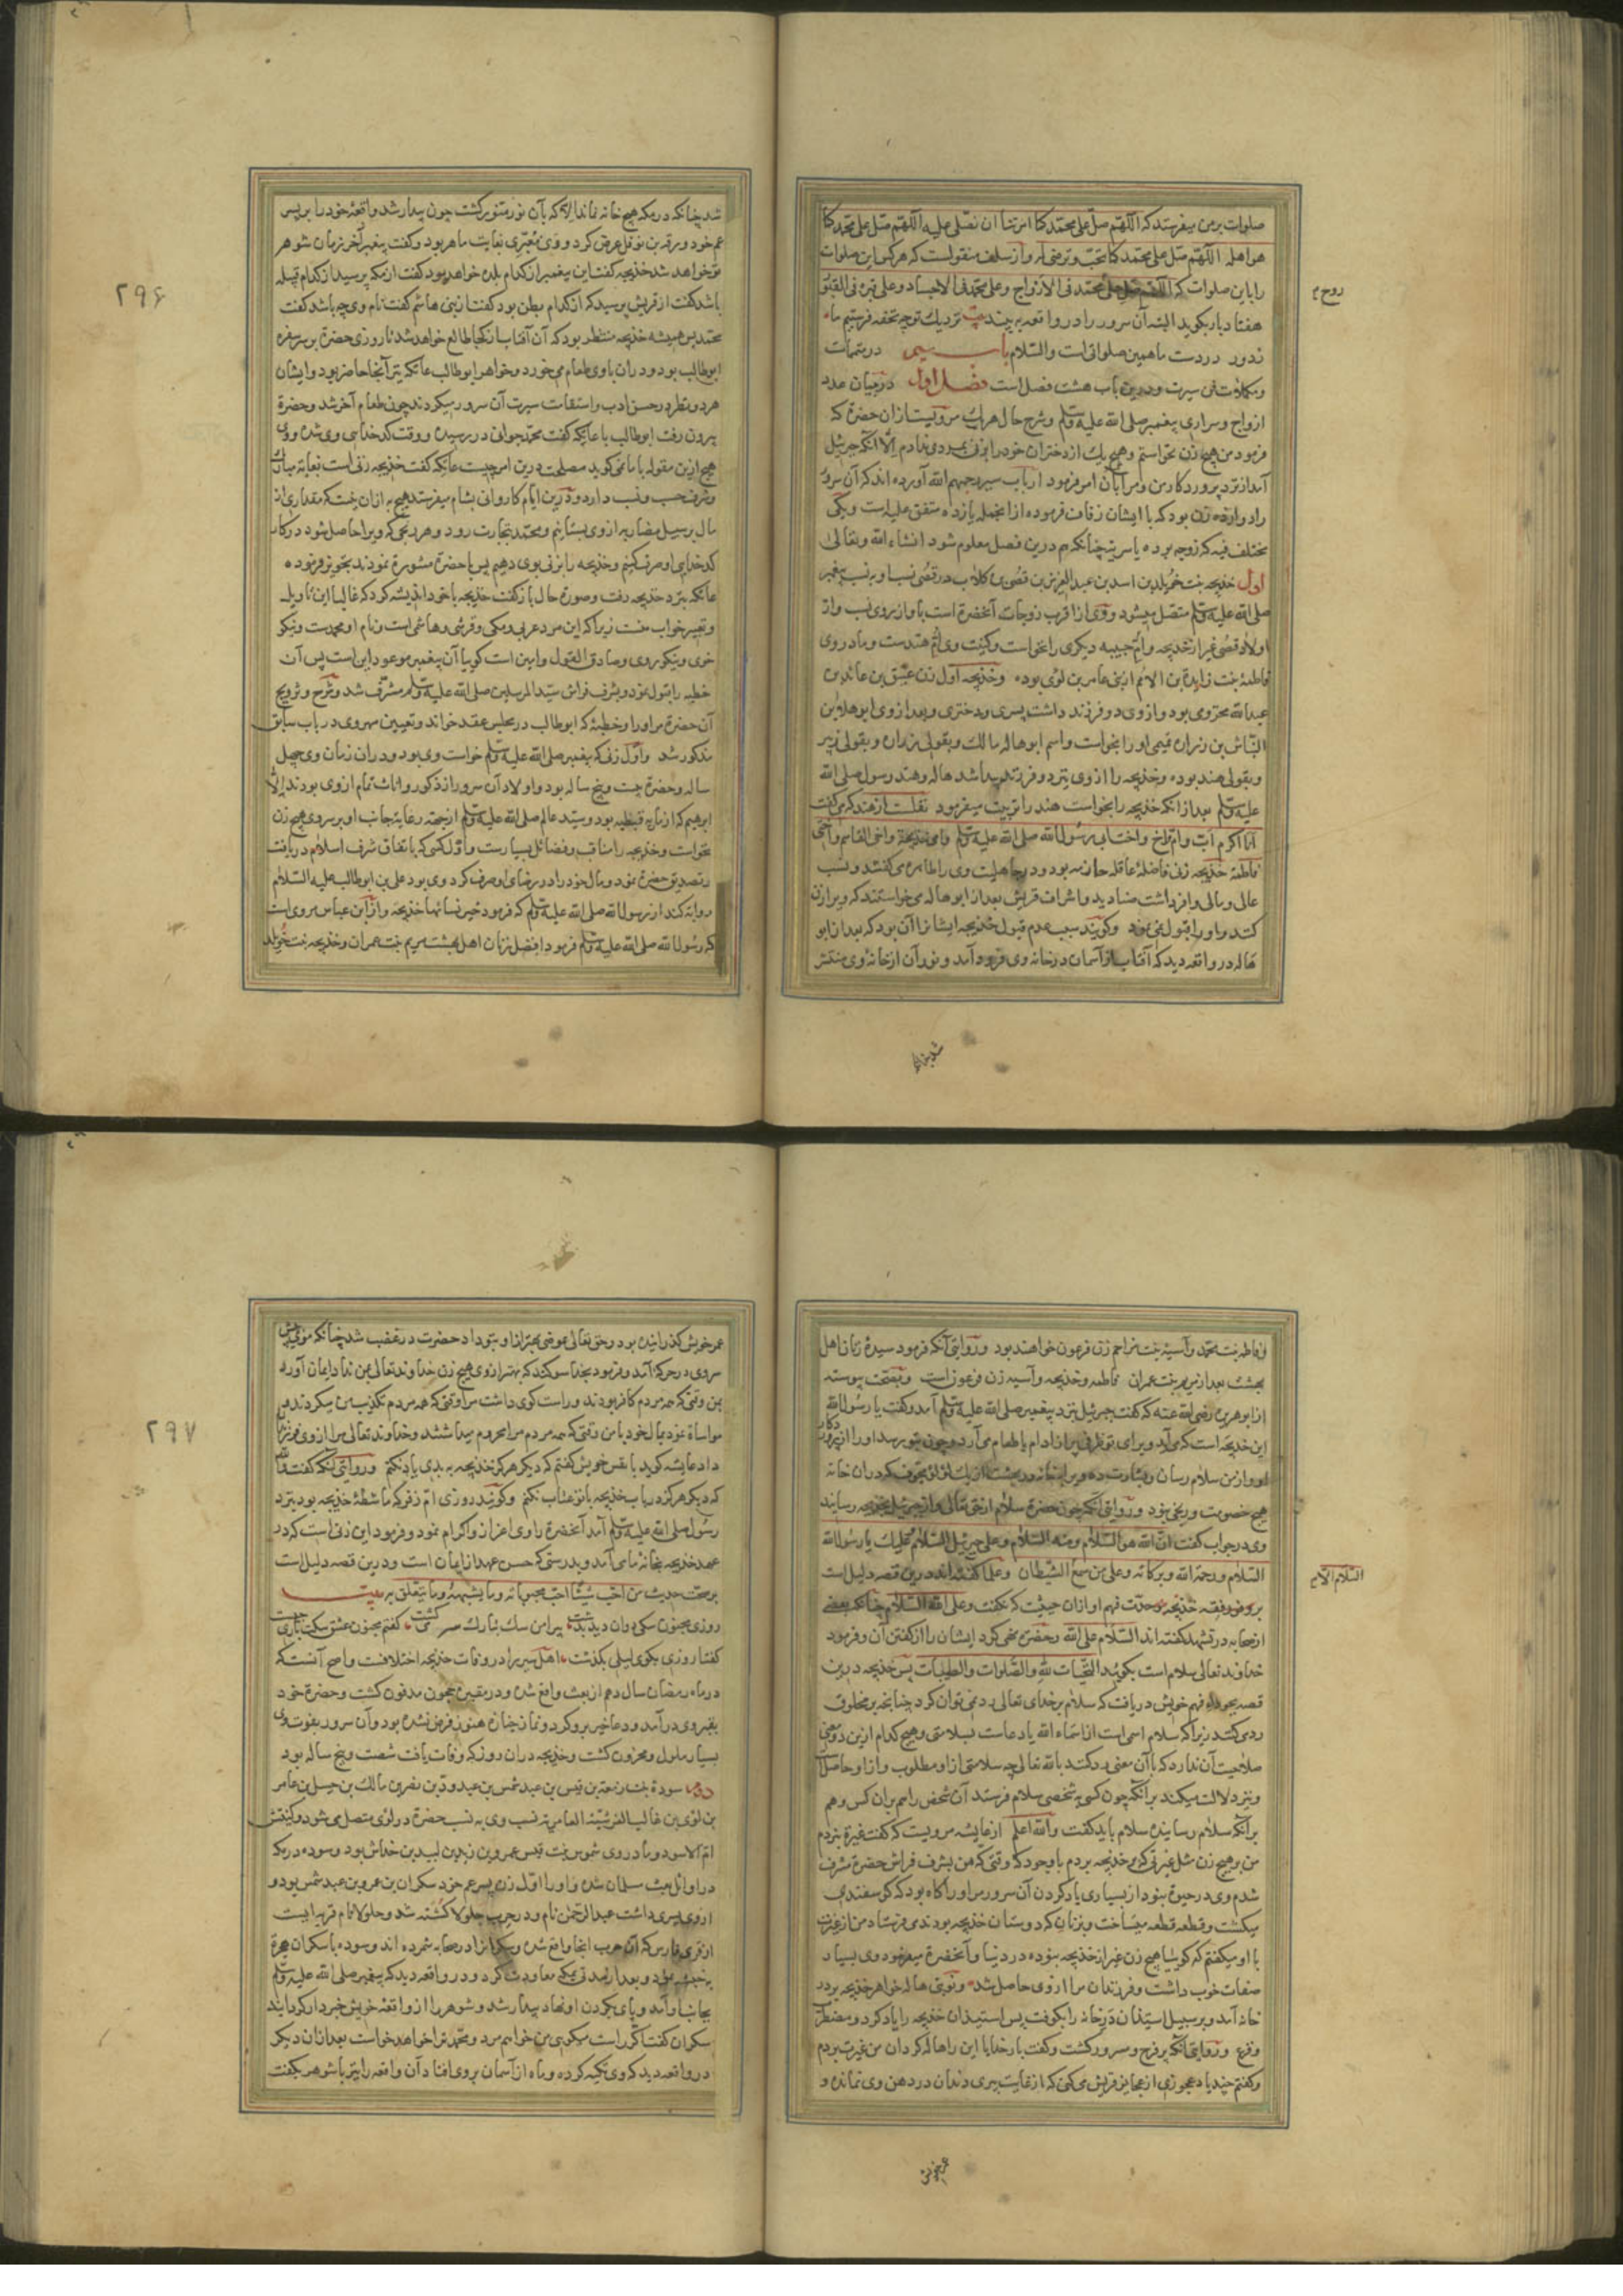 صلوات بر من میفرستد که اللهم صل علی محمد کما امرتنا ان نصلی علیه اللهم صل علی محمد کما
هو اهله اللهم صل علی محمد کما تحب و ترضی له و از سلف منقولست که هر کس این صلوات
را باین صلوات که اللهم صل علی محمد فی الارواح و علی محمد فی الاجساد و علی قبره فی القبور
روح م
هفتاد بار بکوید البته آن سرور را در واقعه به بیند بیت نزدیک تو چه تحفه فرستیم ما
ز دور در دست ما همین صلواتی است و السلام باب سیم در متممات
و مکملات فن سیرت و درین باب هشت فصل است فصل اول در بیان عدد
ازواج و سراری پیغمبر صلی الله علیه وسلم و شرح حال هر یک مرویست از ان حضرة که
فرمود من هیچ زن نخواستم و هیچ یک از دختران خود را بزنی بمردی ندادم الا آنکه جبرئیل
آمد از نزد پروردکار من و مرا بآن امر فرمود ارباب سیر رحمهم الله آورده اند که آن سرور
را دوازده زن بود که با ایشان زفاف فرموده از انجمله یازده متفق علیه است و یکی
مختلف فیه که زوجه بوده یا سریه چنانکه هم درین فصل معلوم شود انشاء الله و تعالی
اول خدیجه بنت خویلد بن اسد بن عبد العزی بن قصی بن کلاب در قصی نسب او به نسب پیغمبر
صلی الله علیه وسلم متصل میشود و وی از اقرب زوجات آنحضرة است باو از روی نسب و از
اولاد قصی غیر از خدیجه و ام حبیبه دیکری را نخواست و کنیت وی ام هندست و مادر وی
فاطمه بنت زایدة بن الاصم از بنی عامر بن لوی بوده و خدیجه اول زن عتیق بن عائذ بن
عبد الله مخزومی بود و از وی دو فرزند داشت پسری و دختری و بعد از وی ابو هالة بن
النباش بن زراره تمیمی او را بخواست و اسم ابو هاله مالک و بقولی زراره و بقولی زبیر
و بقولی هند بوده و خدیجه را از وی نیز دو فرزند پیدا شد هاله و هند و رسول صلی الله
علیه وسلم بعد از انکه خدیجه را بخواست هند را تربیت میفرمود نقلست از هند که می کفت
انا اکرم ابا و اما و اخا و اختا ابی رسول الله صلی الله علیه وسلم و امی خدیجة و اخی القاسم و اختی
فاطمه خدیجه زنی فاضلهٔ عاقله حازمه بود و در جاهلیت وی را طاهره می کفتند و نسب
عالی و مالی وافر داشت صنادید و اشراف قریش بعد از ابو هاله می خواستند که ویرا زن
کنند و او را قبول نمی نمود و کویند سبب عدم قبول خدیجه ایشانرا آن بود که بعد از ابو
هاله در واقعه دید که آفتاب از آسمان در خانه وی فرود آمد و نور آن از خانه وی منتشر
شد چنانکه
شد چنانکه در مکه هیچ خانه نماند الا که بآن نور منور کشت چون بیدار شد واقعهٔ خود را بر پسر
عم خود ورقه بن نوفل عرض کرد و وی معبری بغایت ماهر بود و کفت پیغمبر آخر زمان شوهر
تو خواهد شد خدیجه کفت این پیغمبر از کدام بلده خواهد بود کفت از مکه پرسید از کدام قبیله
باشد کفت از قریش پرسید که از کدام بطن بود کفت از بنی هاشم کفت نام وی چه باشد کفت
محمد پس همیشه خدیجه منتظر بود که آن آفتاب از کجا طالع خواهد شد تا روزی حضرة بر سر سفره
ابو طالب بود و در ان با وی طعام می خورد و خواهر ابو طالب عاتکه نیز آنجا حاضر بود و ایشان
هر دو نظر در حسن ادب و استقامت سیرت آن سرور میکردند چون طعام آخر شد و حضرة
بیرون رفت ابو طالب با عاتکه کفت محمد جوانی در رسیده و وقت کدخدایی وی شده و وی
هیچ ازین مقوله با ما نمی کوید مصلحت درین امر چیست عاتکه کفت خدیجه زنی است بغایة مبارک
و شرف حسب و نسب دارد و درین ایام کاروانی بشام میفرستد هیچ به ازان نیست که مقداری از
مال بر سبیل مضاربه از وی بستانیم و محمد بتجارت رود و هر ربحی که ویرا حاصل شود در کار
کدخدایی او صرف کنیم و خدیجه را بزنی بوی دهیم پس با حضرة مشورة نمودند تجویز فرموده
عاتکه نزد خدیجه رفت و صورة حال باز کفت خدیجه با خود اندیشه کرد که غالبا این تاویل
و تعبیر خواب منست زیرا که این مرد عربی و مکی و قرشی و هاشمی است و نام او محمدست و نیکو
خوی و نیکو روی و صادق القول و امین است کوییا آن پیغمبر موعود این است پس آن
خطبه را قبول نمود و بشرف فراش سید المرسلین صلی الله علیه وسلم مشرف شد و شرح و تزویج
آن حضرة مر او را و خطبهٔ که ابو طالب در مجلس عقد خواند و تعیین مهر وی در باب سابق
مذکور شد و اول زنی که پیغمبر صلی الله علیه وسلم خواست وی بود و در ان زمان وی چهل
ساله و حضرة بیست و پنج ساله بود و اولاد آن سرور از ذکور و اناث تمام از وی بودند الا
ابرهیم که از ماریه قبطیه بود و سید عالم صلی الله علیه وسلم از جهة رعایة جانب او بر سر وی هیچ زن
نخواست و خدیجه را مناقب و فضائل بسیارست و اول کسی که باتفاق شرف اسلام دریافت
و تصدیق حضرة نمود و مال خود را در رضای او صرف کرد وی بود علی بن ابو طالب علیه السلام
روایة کند از رسول الله صلی الله علیه وسلم که فرمود خیر نسائها خدیجه و از ابن عباس مروی است
که رسول الله صلی الله علیه وسلم فرمود افضل زنان اهل بهشت مریم بنت عمران و خدیجه بنت خویلد
۲۹۶
و فاطمه بنت محمد و آسیه بنت مزاحم زن فرعون خواهند بود و روایتی آنکه فرمود سیدهٔ زنان اهل
بهشت بعد از مریم بنت عمران فاطمه و خدیجه و آسیه زن فرعون است و بصحت پیوسته
از ابو هریره رضی الله عنه که کفت جبرئیل نزد پیغمبر صلی الله علیه وسلم آمد و کفت یا رسول الله
این خدیجه است که می آید و برای تو ظرفی پر از ادام یا طعام می آرد و چون بتو برسد او را از پروردکار
او و از من سلام رسان و بشارت ده ویرا بخانه در بهشت از یک لؤلؤ مجوف که در ان خانه
هیچ خصومت و رنجی نبود و روایتی آنکه چون حضرة سلام از حق تعالی و از جبرئیل بخدیجه رسانید
وی در جواب کفت ان الله هو السلام و منه السلام و علی جبرئیل السلام و علیک یا رسول الله
السلام و رحمة الله و برکاته و علی من سمع السلام الا الشیطان و علما کفته اند درین قصه دلیل است
السلام الا م
بر وفور فقه خدیجه و حدت فهم او ازان حیثیت که نکفت و علی الله السلام چنانکه بعضی
از صحابه در تشهد کفته اند السلام علی الله و حضرة نهی کرد ایشان را از کفتن آن و فرمود
خداوند تعالی سلام است بکویید التحیات لله و الصلوات و الطیبات پس خدیجه درین
قصه بجودة فهم خویش دریافت که سلام بر خدای تعالی رد نمی توان کرد چنانچه بر مخلوق
رد می کنند زیرا که سلام اسمی است از اسماء الله یا دعاست بسلامتی و هیچ کدام ازین دو معنی
صلاحیت آن ندارد که با آن معنی رد کنند بالله تعالی چه سلامتی از او مطلوب و از او حاصل است
و نیز دلالت میکند بر آنکه چون کسی به شخصی سلام فرستد آن شخص را هم بران کس و هم
بر آنکه سلام رسانیده سلام باید کفت و الله اعلم از عایشه مرویست که کفت غیرة نبردم
من بر هیچ زن مثل غیرتی که بر خدیجه بردم با وجود که وقتی که من بشرف فراش حضرة مشرف
شدم وی در حیوة نبود از بسیاری یاد کردن آن سرور مر او را کاه بود که کوسفندی
میکشت و قطعه قطعه میساخت و بزنان که دوستان خدیجه بودند می فرستاد من از غیرت
با او میکفتم که کوییا هیچ زن غیر از خدیجه نبوده در دنیا و آنحضرة میفرمود وی بسیار
صفات خوب داشت و فرزندان مرا از وی حاصل شد و نوبتی هاله خواهر خدیجه بر در
خانه آمد و بر سبیل استیذان در خانه را بکوفت پس استیذان خدیجه را یاد کرد و مضطرب
و فزع و روایتی آنکه پر فرح و سرور کشت و کفت بار خدایا این را هاله کردان من غیرت بردم
و کفتم چند یاد عجوزی از عجایز قریش می کنی که از غایت پیری دندان در دهن وی نمانده و
عمر خویش
عمر خویش کذرانیده بود و حق تعالی عوضی بهتر از او بتو داد حضرت در غضب شد چنانکه موی پیش
سر وی در حرکة آمد و فرمود بخدا سوکند که بهتر از وی هیچ زن خداوند تعالی بمن نداد ایمان آورد
بمن وقتی که همه مردم کافر بودند و راست کوی داشت مرا وقتی که همه مردم تکذیب من میکردند و
مواساة نمود بمال خود با من وقتی که همه مردم مرا محروم میداشتند و خداوند تعالی مرا از وی فرزندان
داد عایشه کوید با نفس خویش کفتم که دیکر هرکز خدیجه به بدی یاد نکنم و روایتی آنکه کفت والله
که دیکر هرکز در باب خدیجه با تو عتاب نکنم و کویند روزی ام زفر که ماشطهٔ خدیجه بود نزد
رسول صلی الله علیه وسلم آمد آنحضرة او را اعزاز و اکرام نمود و فرمود این زنی است که در
عهد خدیجه بخانهٔ ما می آمد و بدرستی که حسن عهد از ایمان است و درین قصه دلیل است
بر صحت حدیث من احب شیئا احب محبوباته و ما یشبهه و ما یتعلق به بیت
روزی مجنون سکی دوان دید بدشت پیرامن سک بنازک سر می کشت کفتم مجنون عشق سکت باری چیست
کفتا روزی بکوی لیلی بکذشت اهل سیر را در وفات خدیجه اختلافست و اصح آنست که
در ماه رمضان سال دهم از بعثت واقع شده و در مقبره حجون مدفون کشت و حضرة خود
بقبر وی درآمد و دعا خیر برو کرد و نماز جنازه هنوز فرض نشده بود و آن سرور بفوت وی
بسیار ملول و محزون کشت و خدیجه در ان روز که وفات یافت شصت و پنج ساله بود
دوم سودة بنت زمعة بن قیس بن عبد شمس بن عبد ود بن نصر بن مالک بن حسل بن عامر
بن لؤی بن غالب القرشیة العامریة نسب وی به نسب حضرة در لؤی متصل می شود و کنیتش
ام الاسود و مادر وی شموس بنت قیس بن عمرو بن زید بن لبید بن خداش بود و سوده در مکه
در اوائل بعثت مسلمان شده و او را اول زن پسر عم خود سکران بن عمرو بن عبد شمس بود و
از وی پسری داشت عبد الرحمن نام و در حرب جلولا کشته شد و جلولا نام قریه ایست
از قری فارس که آن حرب آنجا واقع شده و سکران را از صحابه شمرده اند و سوده با سکران هجرة
به حبشه نمود و بعد از مدتی بمکه معاودت کرد و در واقعه دید که پیغمبر صلی الله علیه وسلم
بجانب او آمد و پای بکردن او نهاد بیدار شد و شوهر را از واقعه خویش خبردار کردانید
سکران کفت اکر راست میکویی من خواهم مرد و محمد ترا خواهد خواست بعد از ان دیکر
در واقعه دید که وی تکیه کرده و ماه از آسمان بر وی افتاد آن واقعه را نیز با شوهر بکفت
۲۹۷